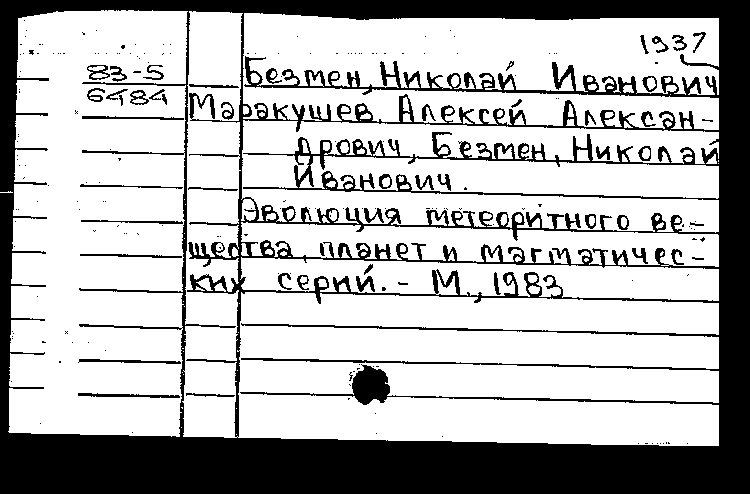 1937
83-5
6484
Безмен, Николай Иванович
Маракушев, Алексей Алексан-
дрович, Безмен, Николай
Иванович.
Эволюция метеоритного ве-
щества, планет и магматичес-
ких серий. - М., 1983